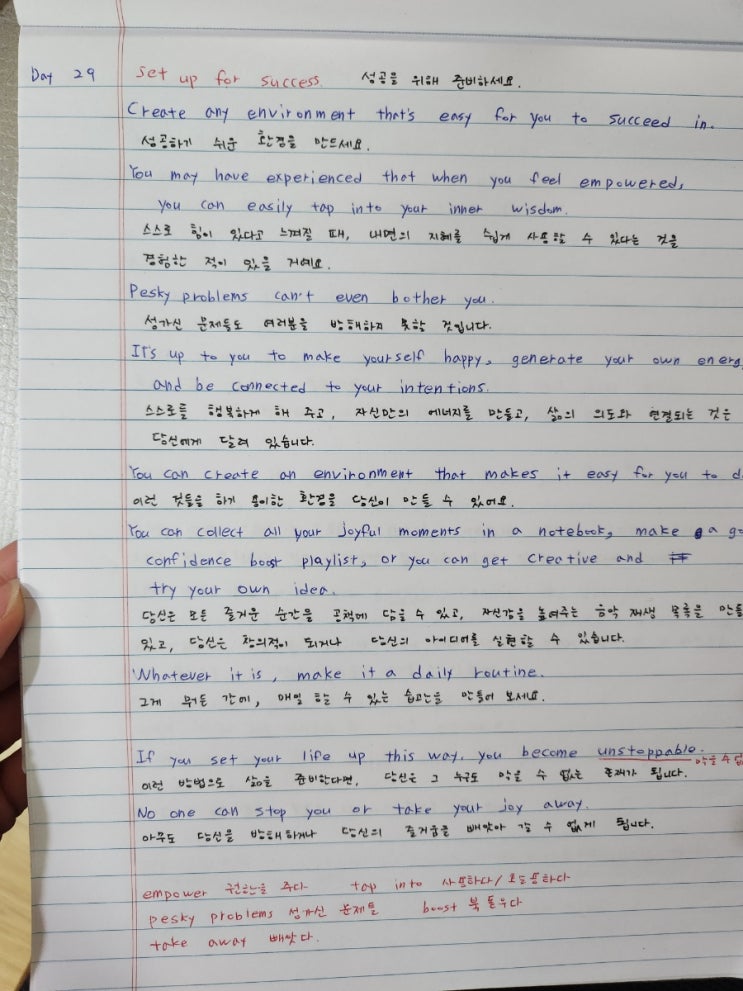 Day 29 Set up for success. 성공을 위해 준비하세요.
Create any environment that's easy for you to succeed in.
성공하기 쉬운 환경을 만드세요.
You may have experienced that when you feel empowered,
you can easily tap into your inner wisdom.
스스로 힘이 있다고 느껴질 때, 내면의 지혜를 쉽게 사용할 수 있다는 것을
경험한 적이 있을 거예요.
Pesky problems can't even bother you.
성가신 문제들도 여러분을 방해하지 못할 것입니다.
It's up to you to make yourself happy, generate your own energ
and be connected to your intentions.
스스로를 행복하게 해 주고, 자신만의 에너지를 만들고, 삶의 의도와 연결되는 것은
당신에게 달려 있습니다.
You can create an environment that makes it easy for you to d
이런 것들을 하기 용이한 환경을 당신이 만들 수 있어요.
You can collect all your joyful moments in a notebook, make a go
confidence boost playlist, or you can get creative and
try your own idea.
당신은 모든 즐거운 순간을 공책에 담을 수 있고, 자신감을 높여주는 음악 재생 목록을 만들
있고, 당신은 창의적이 되거나 당신의 아이디어를 실현할 수 있습니다.
Whatever it is, make it a daily routine.
그게 뭐든 간에, 매일 할 수 있는 습관을 만들어 보세요.
If you set your life up this way, you become unstoppable.
막을 수 없
이런 방법으로 삶을 준비한다면, 당신은 그 누구도 막을 수 없는 존재가 됩니다.
No one can stop you or take your joy away.
아무도 당신을 방해하거나 당신의 즐거움을 빼앗아 갈 수 없게 됩니다.
empower 권한을 주다 tap into 사용하다/
pesky problems 성가신 문제들 boost 북돋우다
take away 빼앗다.